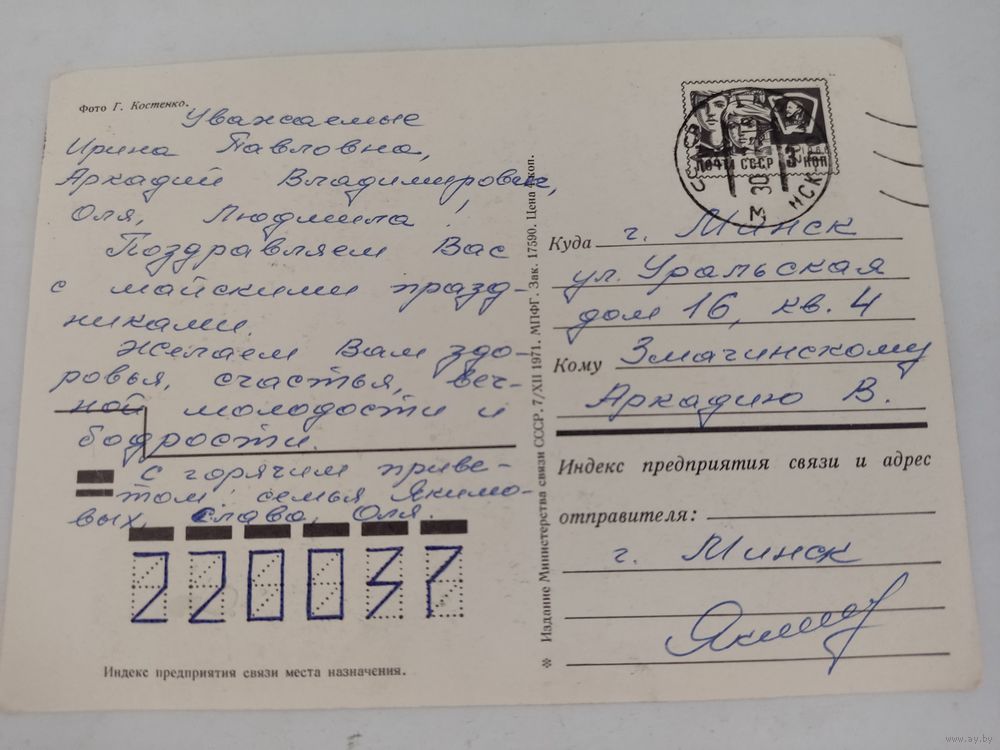 Фото Г. Костенко.
Уважаемые
Ирина Павловна,
Аркадий Владимирович,
Оля, Людмила!
Поздравляем Вас
с майскими празд-
никами.
Желаем Вам здо-
ровья, счастья, веч-
ной молодости и
бодрости.
С горячим приве-
том, семья Якимо-
вых, Слава, Оля.
220037
Индекс предприятия связи места назначения.
✻ Издание Министерства связи СССР. 7/XII 1971. МПФГ. Зак. 17590. Цена коп.
ПОЧТА СССР 3 КОП
МИНСК
Куда г. Минск
ул. Уральская
дом 16, кв. 4
Кому Змачинскому
Аркадию В.
Индекс предприятия связи и адрес
отправителя:
г. Минск
www.ay.by